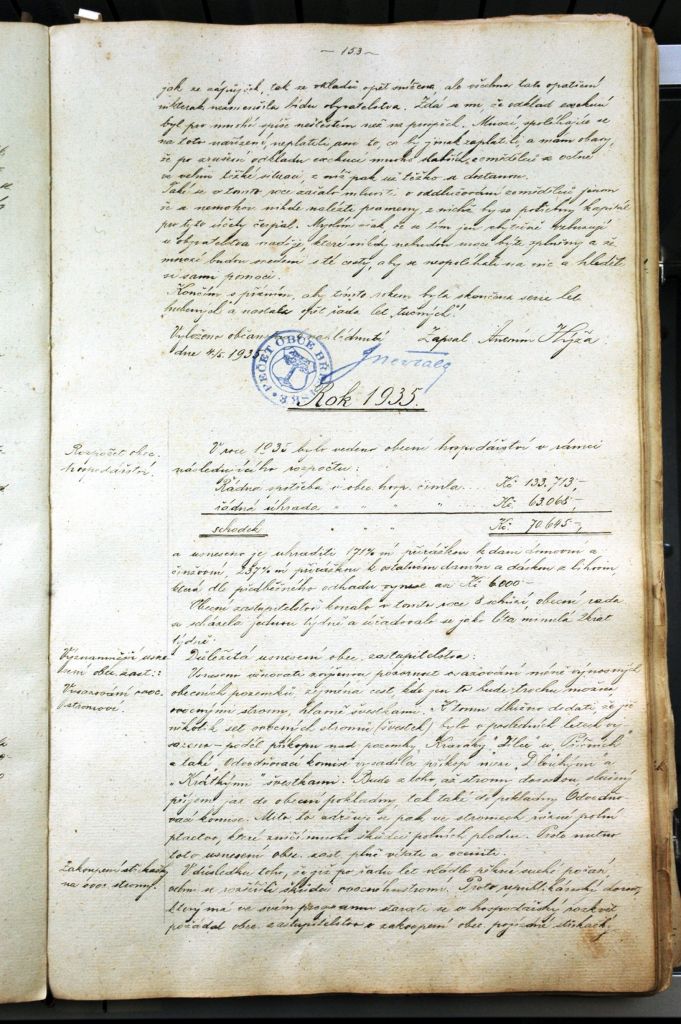 - 153 -
jak ze zápůjček, tak ze vkladů opět snížena, ale všechna tato opatření
nikterak nezmenšila bídu obyvatelstva. Zdá se mi, že odklad exekucí
byl pro mnohé spíše neštěstím než na prospěch. Mnozí, spoléhajíce se
na toto nařízení, neplatili, ani to, co by jinak zaplatili, a mám obavy,
že po zrušení odkladu exekucí mnoho slabších zemědělců se octne
ve velmi těžké situaci, z níž pak už těžko se dostanou.
Také se v tomto roce začalo mluviti o oddlužování zemědělců, jenom
že a nemohou nikde nalézti prameny, z nichž by se potřebný kapitál
pro tyto účely čerpal. Myslím však, že se tím jen zbytečně vzbuzují
u obyvatelstva naděje, které nikdy nebudou moci býti splněny a že
mnozí budou svedeni s té cesty, aby se nespoléhali na nic a hleděli
si sami pomoci.
Končím s přáním, aby tímto rokem byla skončena serie let
"hubených" a nastala opět řada let "tučných".
Vyloženo občanům k nahlédnutí Zapsal Antonín Hýža
dne 4/5 1935
PEČEŤ OBCE
Rok 1935.
Rozpočet obec.
hospodářství.
V roce 1935 bylo vedeno obecní hospodářství v rámci
následujícího rozpočtu:
Řádná potřeba v obec. hosp. činila . . . Kč 133.713,-
řádná úhrada " " " " Kč 63.068,-
schodek " " Kč 70.645,-
a usneseno je uhraditi 171% ní přirážkou k dani domovní a
činžovní, 237% ní přirážkou k ostatním daním a dávkou z lihovin
která dle předběžného odhadu vynese as Kč 6.000-
Obecní zastupitelstvo konalo v tomto roce 8 schůzí, obecní rada
se scházela jednou týdně a úřadovalo se jako léta minulá 2krát
týdně.
Významnější usne-
sení obec. zast.:
Vysazování ovoc.
stromoví
Důležitá usnesení obec. zastupitelstva:
Usneseno věnovati zvýšenou pozornost osazování méně výnosných
obecních pozemků, zejména cest, kde jen to bude trochu možno,
ovocnými stromy, hlavně švestkami. K tomu dlužno dodati, že již
několik set ovocných stromů (švestek) bylo v posledních letech vy-
sazeno - podél příkopu nad pozemky "Kraváky" "Dílce" u
a také Odvodňovací komise vysadila příkop mezi "Dlouhým" a
"Krátkými" švestkami. Bude z toho až stromy dorostou slušný
příjem jak do obecní pokladny, tak také do pokladny Odvodňo-
vací komise. Mimo to udržuje se pak ve stromech různé polní
ptactvo, které zničí mnoho škůdců polních plodin. Proto nutno
toto usnesení obec. zast. plně vítati a oceniti.
Zakoupení stříkačky
na ovoc. stromy.
V důsledku toho, že již po řadu let vládlo pěkné suché počasí,
velmi se rozšířili škůdci ovocného stromoví. Proto republikánský dorost,
který má ve svém programu starati se o hospodářský rozkvět
požádal obec. zastupitelstvo o zakoupení obec. pojízdné stříkačky